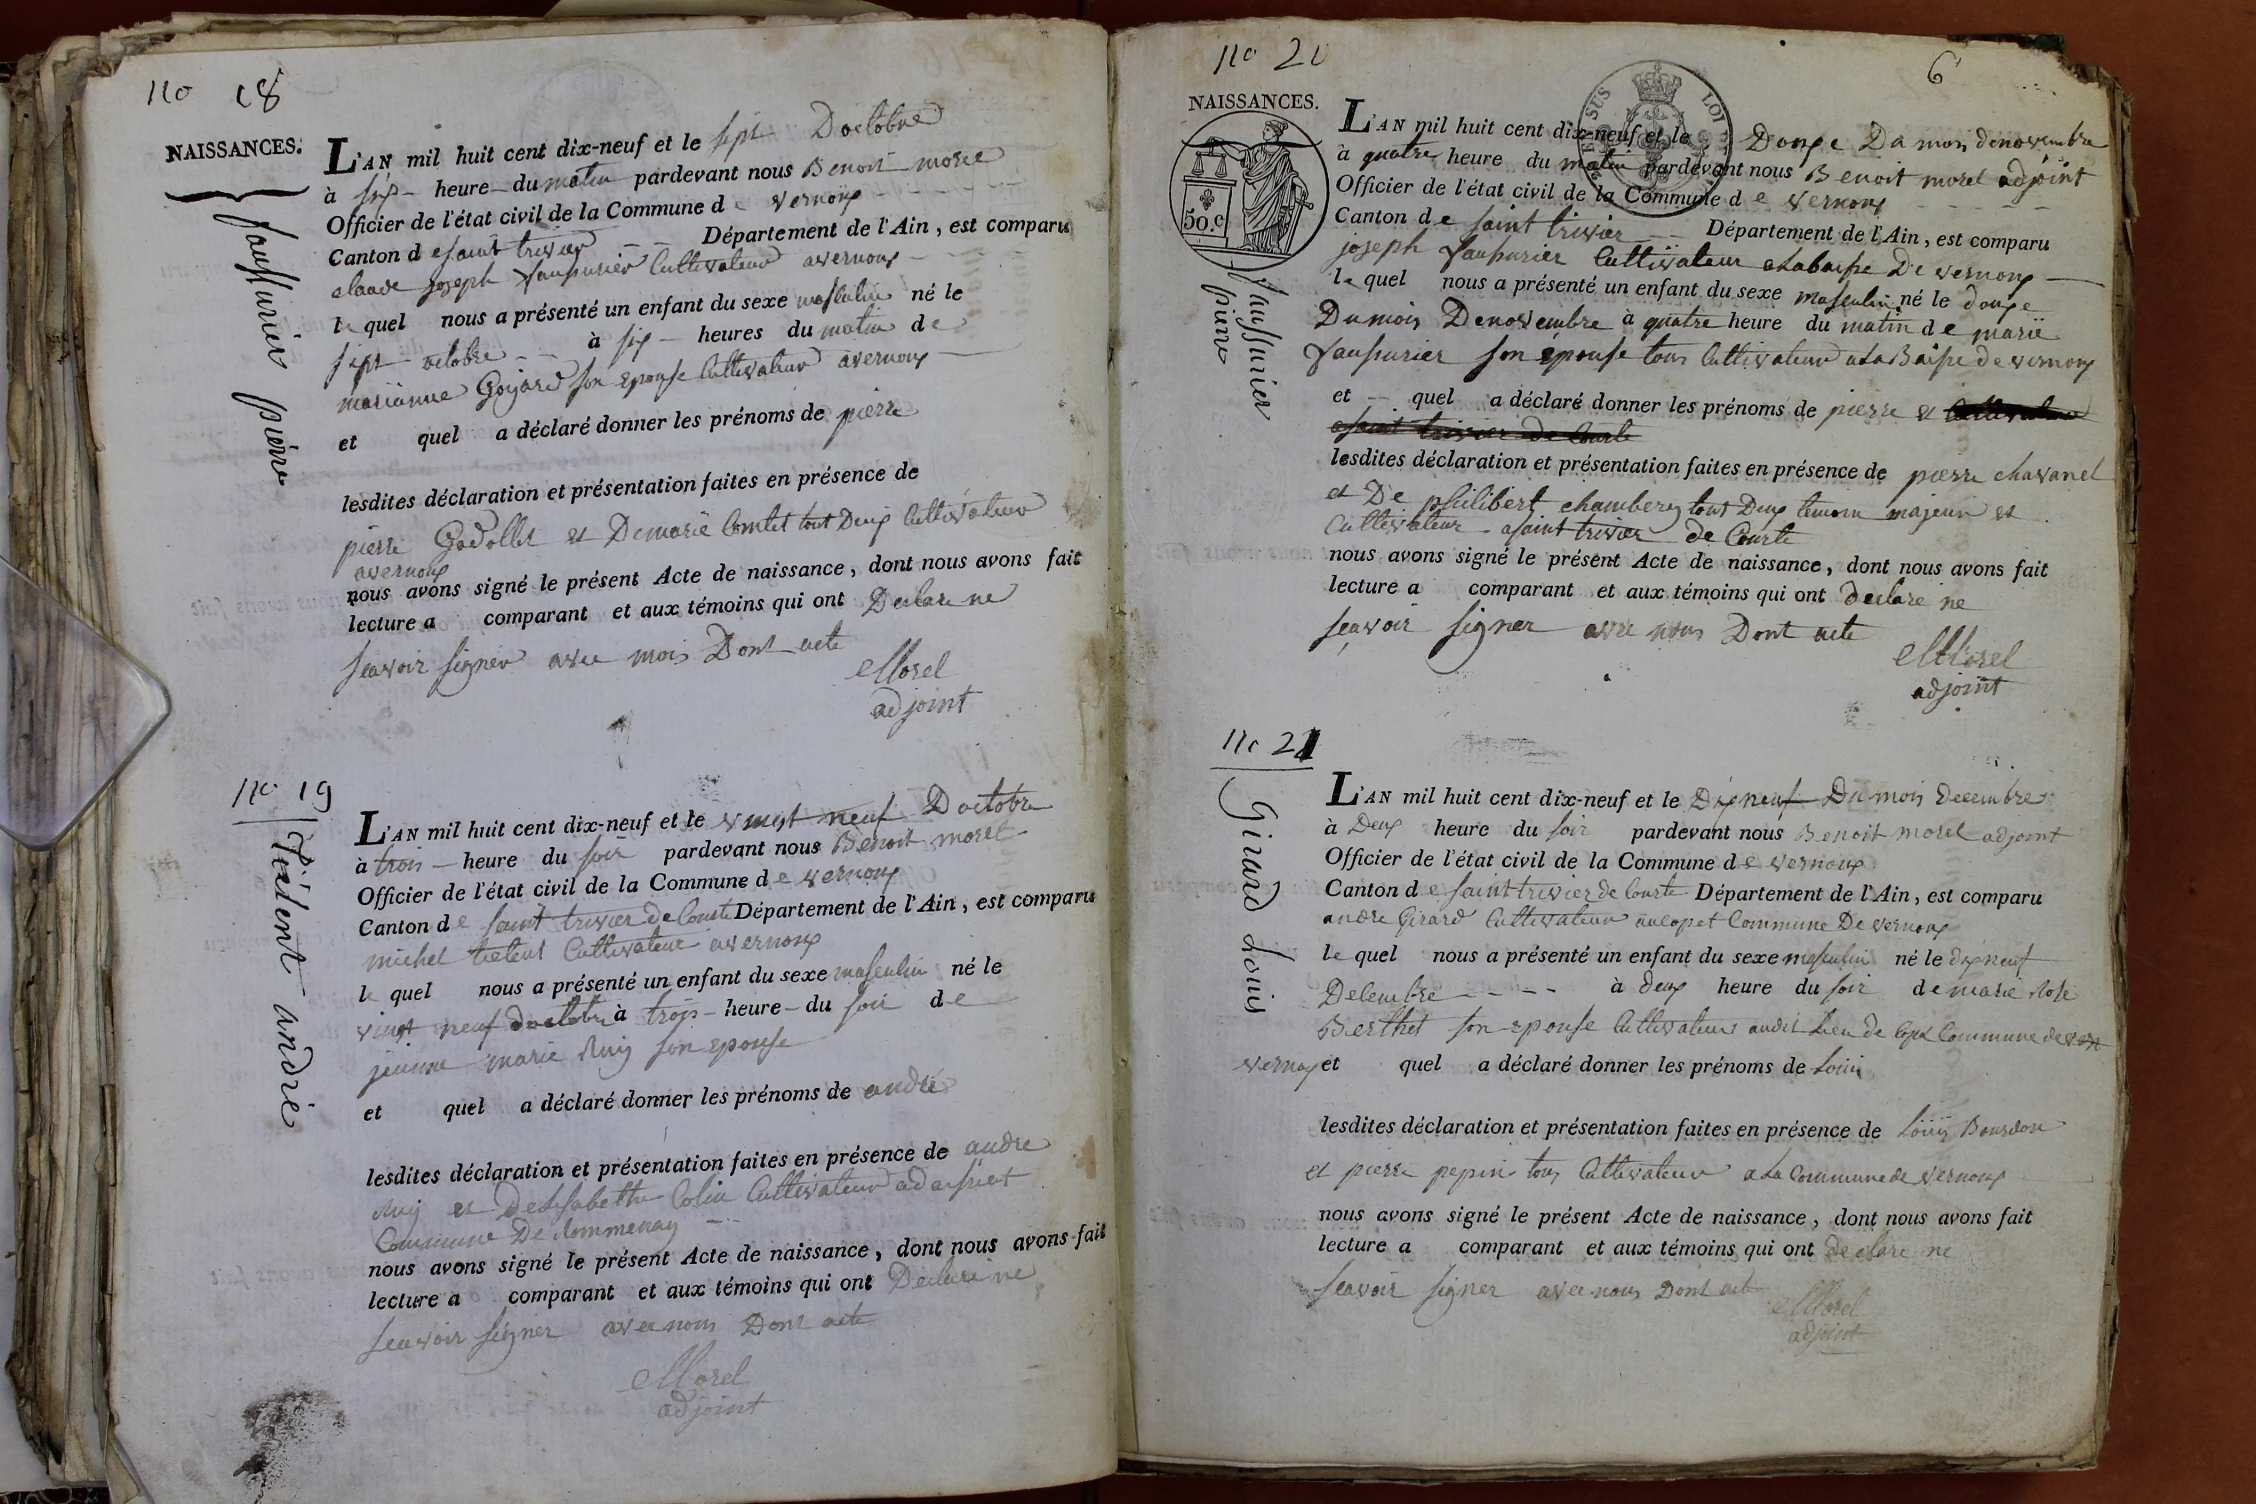 no 18
NAISSANCES.
faussurier pierre
L'AN mil huit cent dix-neuf et le sept Doctobre
à six heure du matin pardevant nous Benoit morel
Officier de l'état civil de la Commune de vernoux
Canton de saint trivier Département de l'Ain, est comparu
claude joseph faussurier Cultivateur avernoux
le quel nous a présenté un enfant du sexe masculin né le
sept octobre à six heures du matin de
marianne Goyard son epouse Cultivateur avernoux
et quel a déclaré donner les prénoms de pierre
lesdites déclaration et présentation faites en présence de
pierre Godollet et Demarie Comtet tout Deux Cultivateur
avernoux
nous avons signé le présent Acte de naissance, dont nous avons fait
lecture a comparant et aux témoins qui ont Declare ne
seavoir signer avec mois Dont acte
Morel
adjoint
no 19
Tiélent andré
L'AN mil huit cent dix-neuf et le vingt neuf Doctobre
à trois heure du soir pardevant nous Benoit morel
Officier de l'état civil de la Commune de vernoux
Canton de saint trivier de Courte Département de l'Ain, est comparu
michel tielent Cultivateur avernoux
le quel nous a présenté un enfant du sexe masculin né le
vingt neuf doctobre à trois heure du soir de
jeanne marie Ruiy son epouse
et quel a déclaré donner les prénoms de andré
lesdites déclaration et présentation faites en présence de andre
Ruiy et Delisabethe Colin Cultivateur
Commune De Rommenay
nous avons signé le présent Acte de naissance, dont nous avons fait
lecture a comparant et aux témoins qui ont Declare ne
seavoir signer avec nous Dont acte
Morel
adjoint
no 20
6
NAISSANCES.
50.c
faussurier
pierre
L'AN mil huit cent dix-neuf et le Douze Du mois denovembre
à quatre heure du matin pardevant nous Benoit morel adjoint
Officier de l'état civil de la Commune de vernoux
Canton de saint trivier Département de l'Ain, est comparu
joseph faussurier Cultivateur alabaisse De vernoux
le quel nous a présenté un enfant du sexe masculin né le douze
Dumois Denovembre à quatre heure du matin de marie
faussurier son épouse tous Cultivateur alaBaisse de vernoux
et quel a déclaré donner les prénoms de pierre et Cultivateur
asaint trivier de Courte
lesdites déclaration et présentation faites en présence de pierre chavanel
et De philibert chambery tout Deux temoin majeur et
Cultivateur asaint trivier de Courte
nous avons signé le présent Acte de naissance, dont nous avons fait
lecture a comparant et aux témoins qui ont declare ne
seavoir signer avec nous Dont acte
Morel
adjoint
no 21
Girard Louis
L'AN mil huit cent dix-neuf et le Dixneuf Du mois decembre
à Deux heure du soir pardevant nous Benoit morel adjoint
Officier de l'état civil de la Commune de vernoux
Canton de saint trivier de Courte Département de l'Ain, est comparu
andre Girard Cultivateur Commune De vernoux
le quel nous a présenté un enfant du sexe masculin né le dixneuf
Decembre à deux heure du soir de marie Rose
Berthet son epouse Cultivateur audit Lieu de Commune de
vernoux et quel a déclaré donner les prénoms de Louis
lesdites déclaration et présentation faites en présence de Louis Bourdon
et pierre pepin tous Cultivateur a La Commune de vernoux
nous avons signé le présent Acte de naissance, dont nous avons fait
lecture a comparant et aux témoins qui ont declare ne
seavoir signer avec nous Dont acte
Morel
adjoint